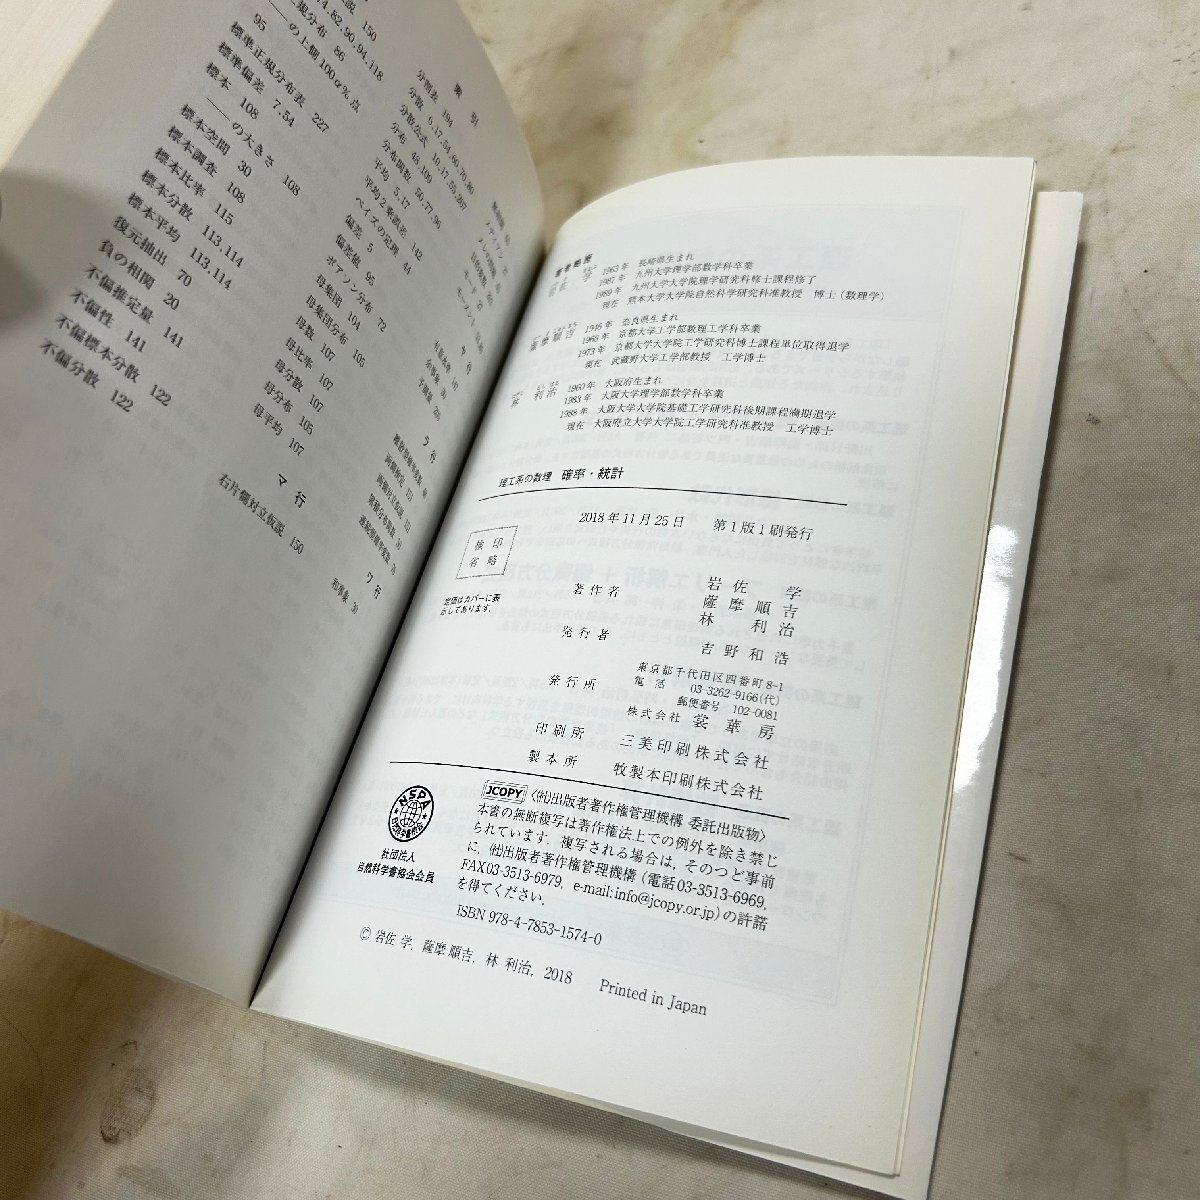 索引
150
4,82,90,94,118
規分布 86
――の上側100α%点
95
標準正規分布表 227
標準偏差 7,54
標本 108
――の大きさ 108
標本空間 30
標本調査 108
標本比率 115
標本分散 113,114
標本平均 113,114
復元抽出 70
負の相関 20
不偏推定量 141
不偏性 141
不偏標本分散 122
不偏分散 122
分割表 194
分散 6,17,54,60,70,80
分散公式 10,17,55,267
分布 48,109
分布関数 50,77,96
平均 5,17
平均2乗誤差 142
ベイズの定理 44
偏差 5
偏差値 95
ポアソン分布 72
母集団 104
母集団分布 105
母数 107
母比率 107
母分散 107
母分布 105
母平均 107
マ行
右片側対立仮説 150
ヤ行
ラ行
ワ行
和事象 30
著者略歴
1963年 長崎県生まれ
1987年 九州大学理学部数学科卒業
1989年 九州大学大学院理学研究科修士課程修了
現在 熊本大学大学院自然科学研究科准教授 博士(数理学)
薩摩順吉
1946年 奈良県生まれ
1968年 京都大学工学部数理工学科卒業
1973年 京都大学大学院工学研究科博士課程単位取得退学
現在 武蔵野大学工学部教授 工学博士
林 利治
1960年 大阪府生まれ
1983年 大阪大学理学部数学科卒業
1988年 大阪大学大学院基礎工学研究科後期課程満期退学
現在 大阪府立大学大学院工学研究科准教授 工学博士
理工系の数理 確率・統計
2018年11月25日 第1版1刷発行
検印
省略
定価はカバーに表
示してあります.
著作者 岩佐 学
薩摩順吉
林 利治
発行者 吉野和浩
発行所 東京都千代田区四番町8-1
電話 03-3262-9166(代)
郵便番号 102-0081
株式会社 裳華房
印刷所 三美印刷株式会社
製本所 牧製本印刷株式会社
NSPA
自然科学書協会
社団法人
自然科学書協会会員
JCOPY 〈(社)出版者著作権管理機構 委託出版物〉
本書の無断複写は著作権法上での例外を除き禁じ
られています. 複写される場合は, そのつど事前
に, (社)出版者著作権管理機構(電話03-3513-6969,
FAX03-3513-6979, e-mail:info@jcopy.or.jp)の許諾
を得てください.
ISBN 978-4-7853-1574-0
© 岩佐 学, 薩摩順吉, 林 利治, 2018 Printed in Japan